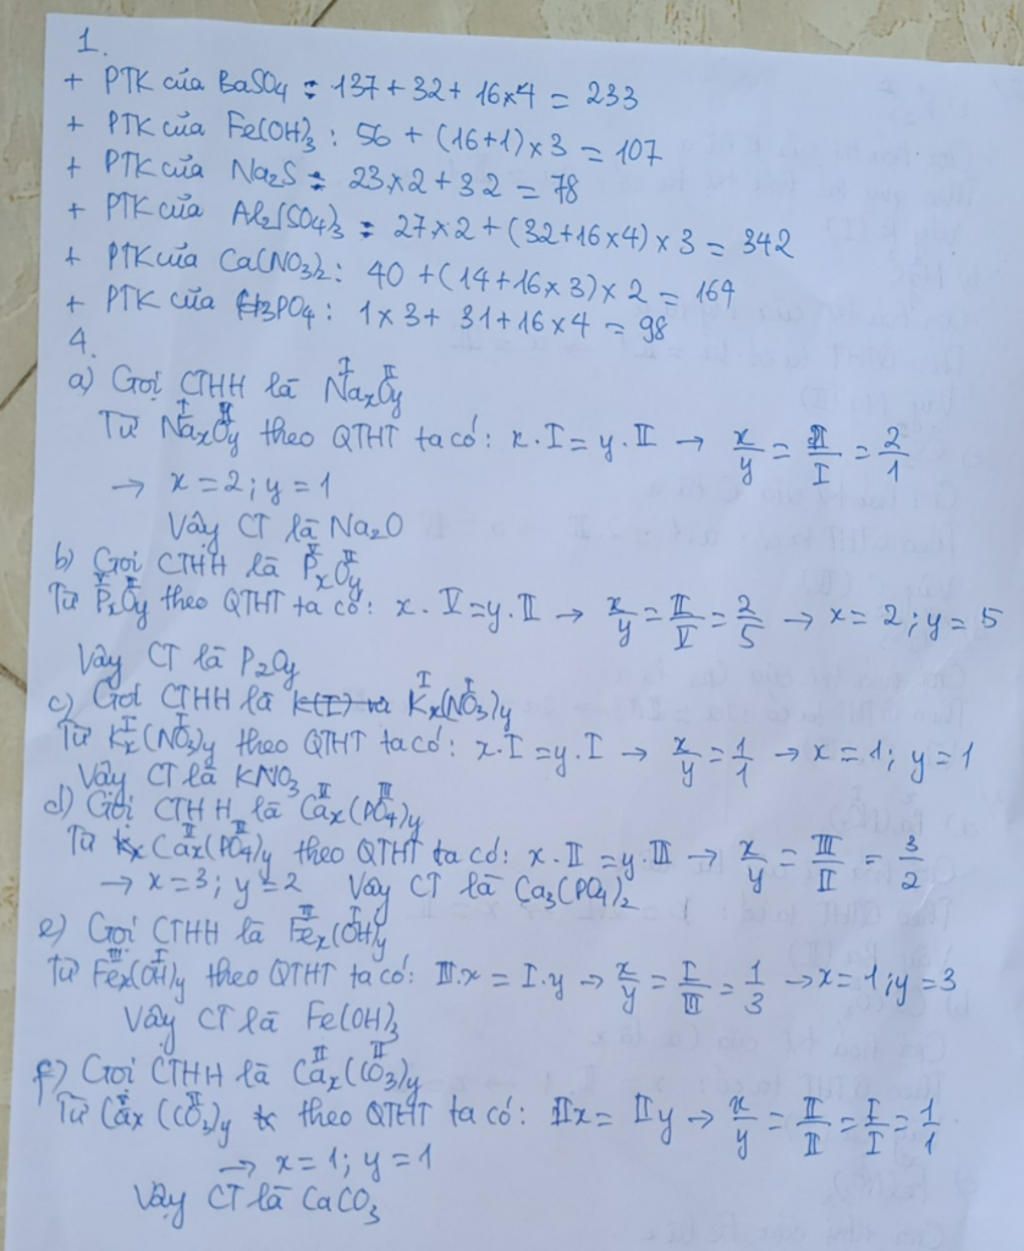 1.
+ PTK của BaSO4 : 137 + 32 + 16×4 = 233
+ PTK của Fe(OH)3 : 56 + (16+1)×3 = 107
+ PTK của Na2S : 23×2 + 32 = 78
+ PTK của Al2(SO4)3 : 27×2 + (32+16×4)×3 = 342
+ PTK của Ca(NO3)2 : 40 + (14+16×3)×2 = 164
+ PTK của H3PO4 : 1×3 + 31 + 16×4 = 98
4.
a) Gọi CTHH là NaxOy (I, II)
Từ NaxOy (I, II) theo QTHT ta có: x.I = y.II → x/y = II/I = 2/1
→ x = 2; y = 1
Vậy CT là Na2O
b) Gọi CTHH là PxOy (V, II)
Từ PxOy (V, II) theo QTHT ta có: x.V = y.II → x/y = II/V = 2/5 → x = 2; y = 5
Vậy CT là P2Oy
c) Gọi CTHH là Kx(NO3)y (I, I)
Từ Kx(NO3)y (I, I) theo QTHT ta có: x.I = y.I → x/y = 1/1 → x = 1; y = 1
Vậy CT là KNO3
d) Gọi CTHH là Cax(PO4)y (II, III)
Từ Cax(PO4)y (II, III) theo QTHT ta có: x.II = y.III → x/y = III/II = 3/2
→ x = 3; y = 2 Vậy CT là Ca3(PO4)2
e) Gọi CTHH là Fex(OH)y (III, I)
Từ Fex(OH)y (III, I) theo QTHT ta có: III.x = I.y → x/y = I/III = 1/3 → x = 1; y = 3
Vậy CT là Fe(OH)3
f) Gọi CTHH là Cax(CO3)y (II, II)
Từ Cax(CO3)y (II, II) theo QTHT ta có: IIx = IIy → x/y = II/II = I/I = 1/1
→ x = 1; y = 1
Vậy CT là CaCO3